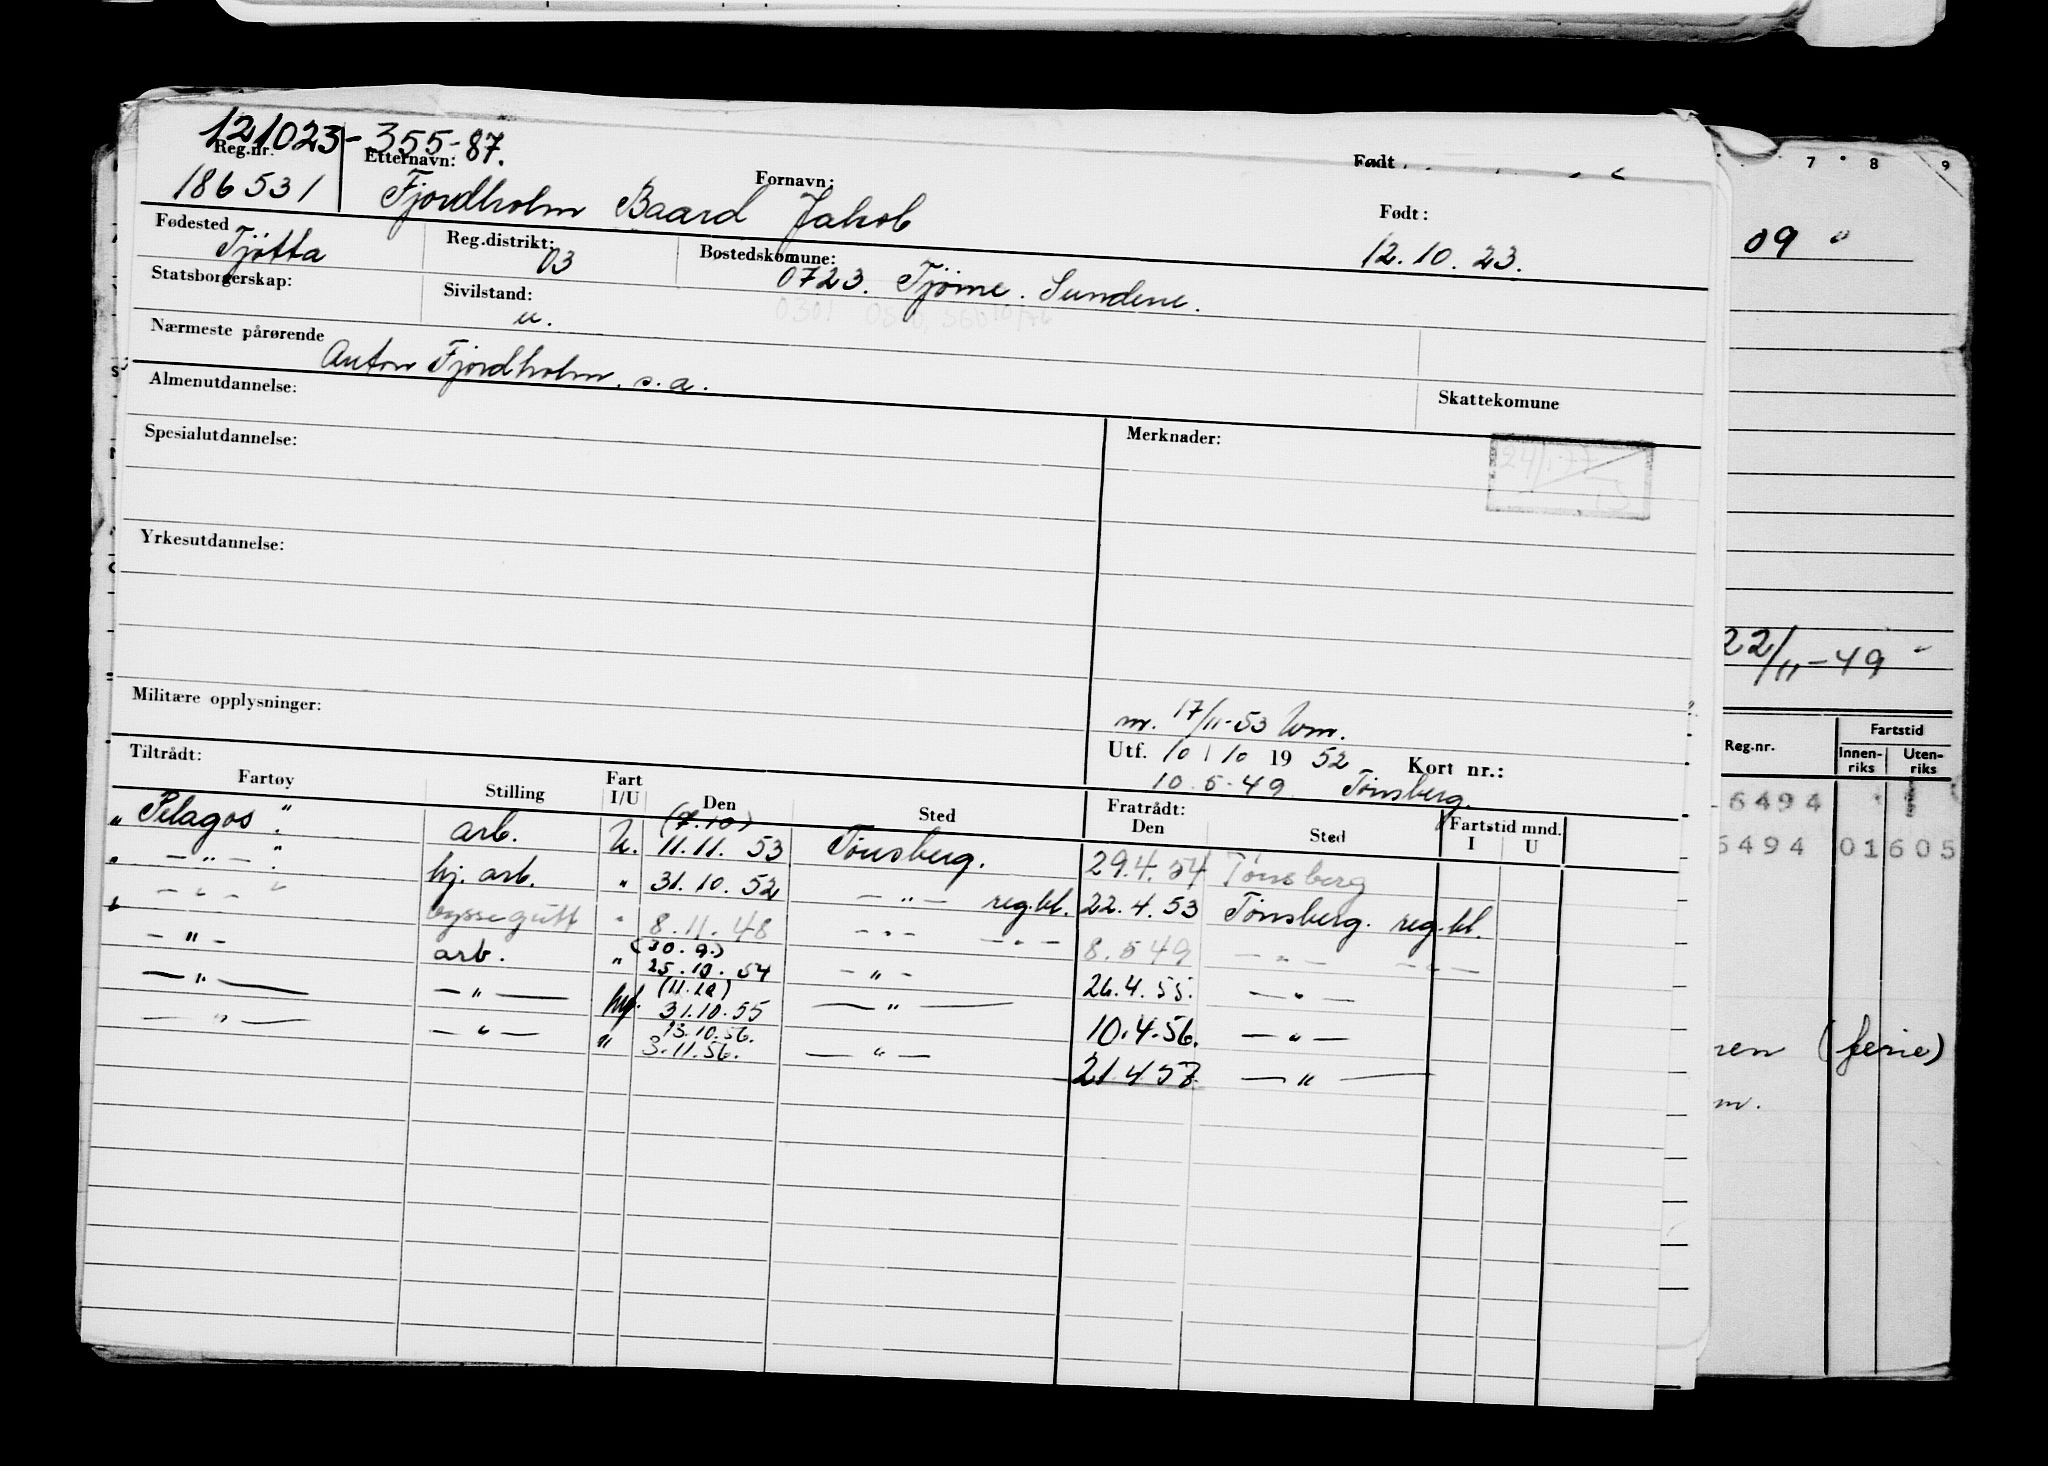 121023-355-87.
Reg.nr. Etternavn: Fornavn: Født
186531 Fjordholm Baard Jakob Født: 12.10.23.
Fødested Tjøtta Reg.distrikt: 03 Bostedskomune: 0723. Tjøme. Sundene.
Statsborgerskap: Sivilstand: u.
Nærmeste pårørende Anton Fjordholm. s.a.
Almenutdannelse: Skattekomune
Spesialutdannelse: Merknader:
Yrkesutdannelse:
Militære opplysninger:
m. 17/11-53
Utf. 10/10 1952 Kort nr.:
10.5-49 Tønsberg.
Tiltrådt:
Fartøy Stilling Fart I/U Den Sted Fratrådt: Den Sted Fartstid mnd. I U
"Pelagos". arb. U. (7.10) 11.11. 53 Tønsberg. 29.4.54 Tønsberg
" — " — ". hj. arb. " 31.10.52 — " — reg.bl. 22.4.53 Tønsberg. reg.bl.
" — " — " byssegutt " 8.11.48 — " — — " — 8.5 49 — " — — " —
— " — arb. " (30.9.) 25.10.54 — " — 26.4.55. — " —
— " — — " — (11.10) 31.10.55 — " — 10.4.56. — " —
— " — — " — " 13.10.56. 3.11.56. — " — 21.4 57. — " —
7 8 9
09 "
22/11-49 "
Reg.nr. Fartstid
Innenriks Utenriks
6494
6494 01605
(ferie)